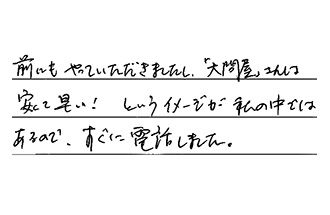 前にもやっていただきましたし、「大問屋」さんは
安くて早い！というイメージが私の中では
あるので、すぐに電話しました。